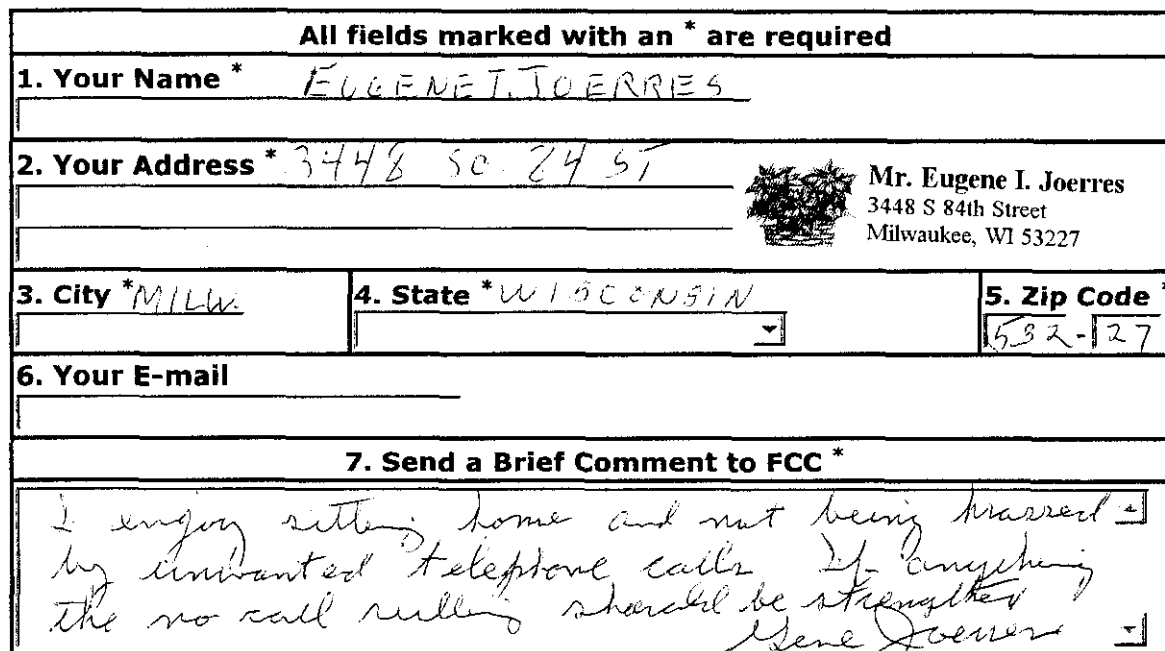 All fields marked with an * are required
1. Your Name * EUGENE I. JOERRES
2. Your Address * 3448 SO. 84 ST
Mr. Eugene I. Joerres
3448 S 84th Street
Milwaukee, WI 53227
3. City * MILW. 4. State * WISCONSIN 5. Zip Code *
532-27
6. Your E-mail
7. Send a Brief Comment to FCC *
I enjoy sitting home and not being hrassed
by unwanted telephone calls If anything
the no call rulling should be strengthen
Gene Joerres